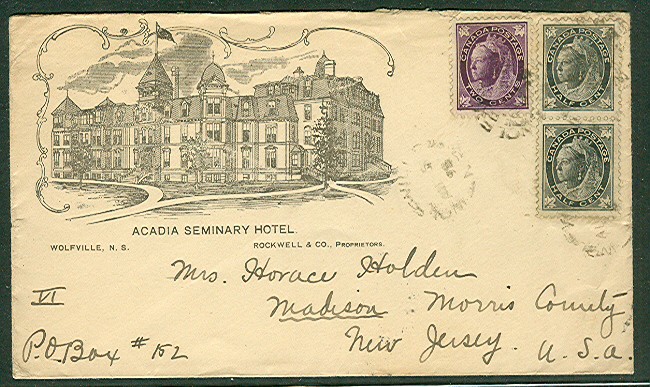 CANADA POSTAGE
TWO CENTS
CANADA POSTAGE
HALF CENT
CANADA POSTAGE
HALF CENT
ACADIA SEMINARY HOTEL.
WOLFVILLE, N. S. ROCKWELL & CO., PROPRIETORS.
Mrs. Horace Holden
VI Madison Morris County
P.O. Box #152 New Jersey. U.S.a.